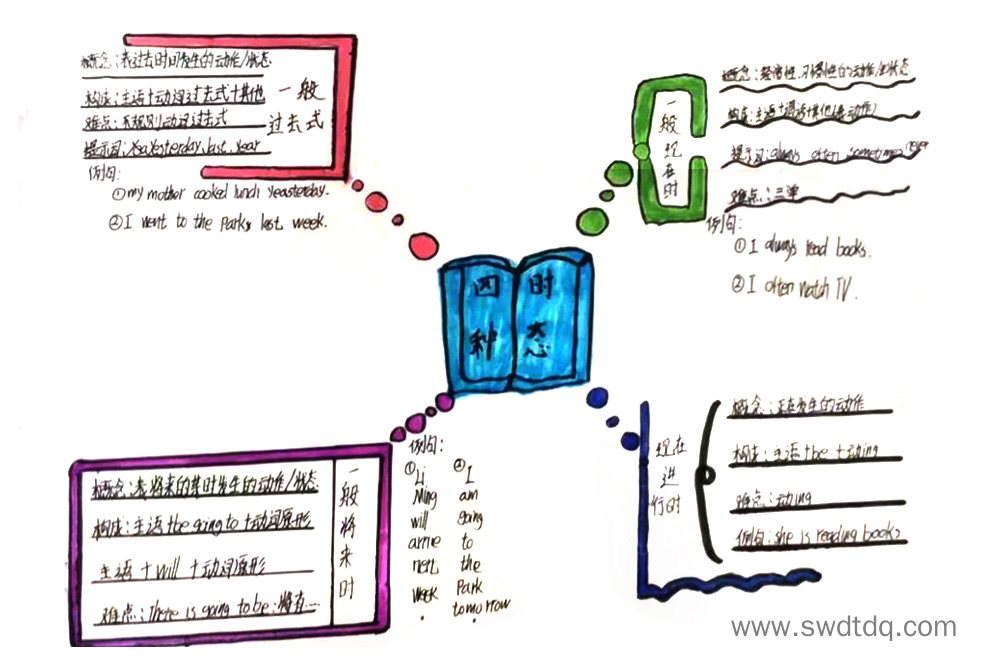 概念：表过去时间发生的动作/状态
构成：主语+动词过去式+其他
难点：不规则动词过去式
提示词：yesterday, last year
例句：
①my mother cooked lunch yeasterday.
②I went to the Park last week.
一般
过去式
概念：经常性、习惯性的动作/状态
构成：主语+谓语+其他
提示词：always often sometimes
难点：三单
一般现在时
例句：
①I always read books.
②I often watch TV.
四种
时态
概念：表将来的某时发生的动作/状态
构成：主语+be going to+动词原形
主语+will+动词原形
难点：there is going to be：将有……
一般将来时
例句：
①Li Ming will arrive next week.
②I am going to the Park tomorrow.
现在
进
行时
概念：正在发生的动作
构成：主语+be+动ing
难点：动ing
例句：she is reading books
www.swdtdq.com